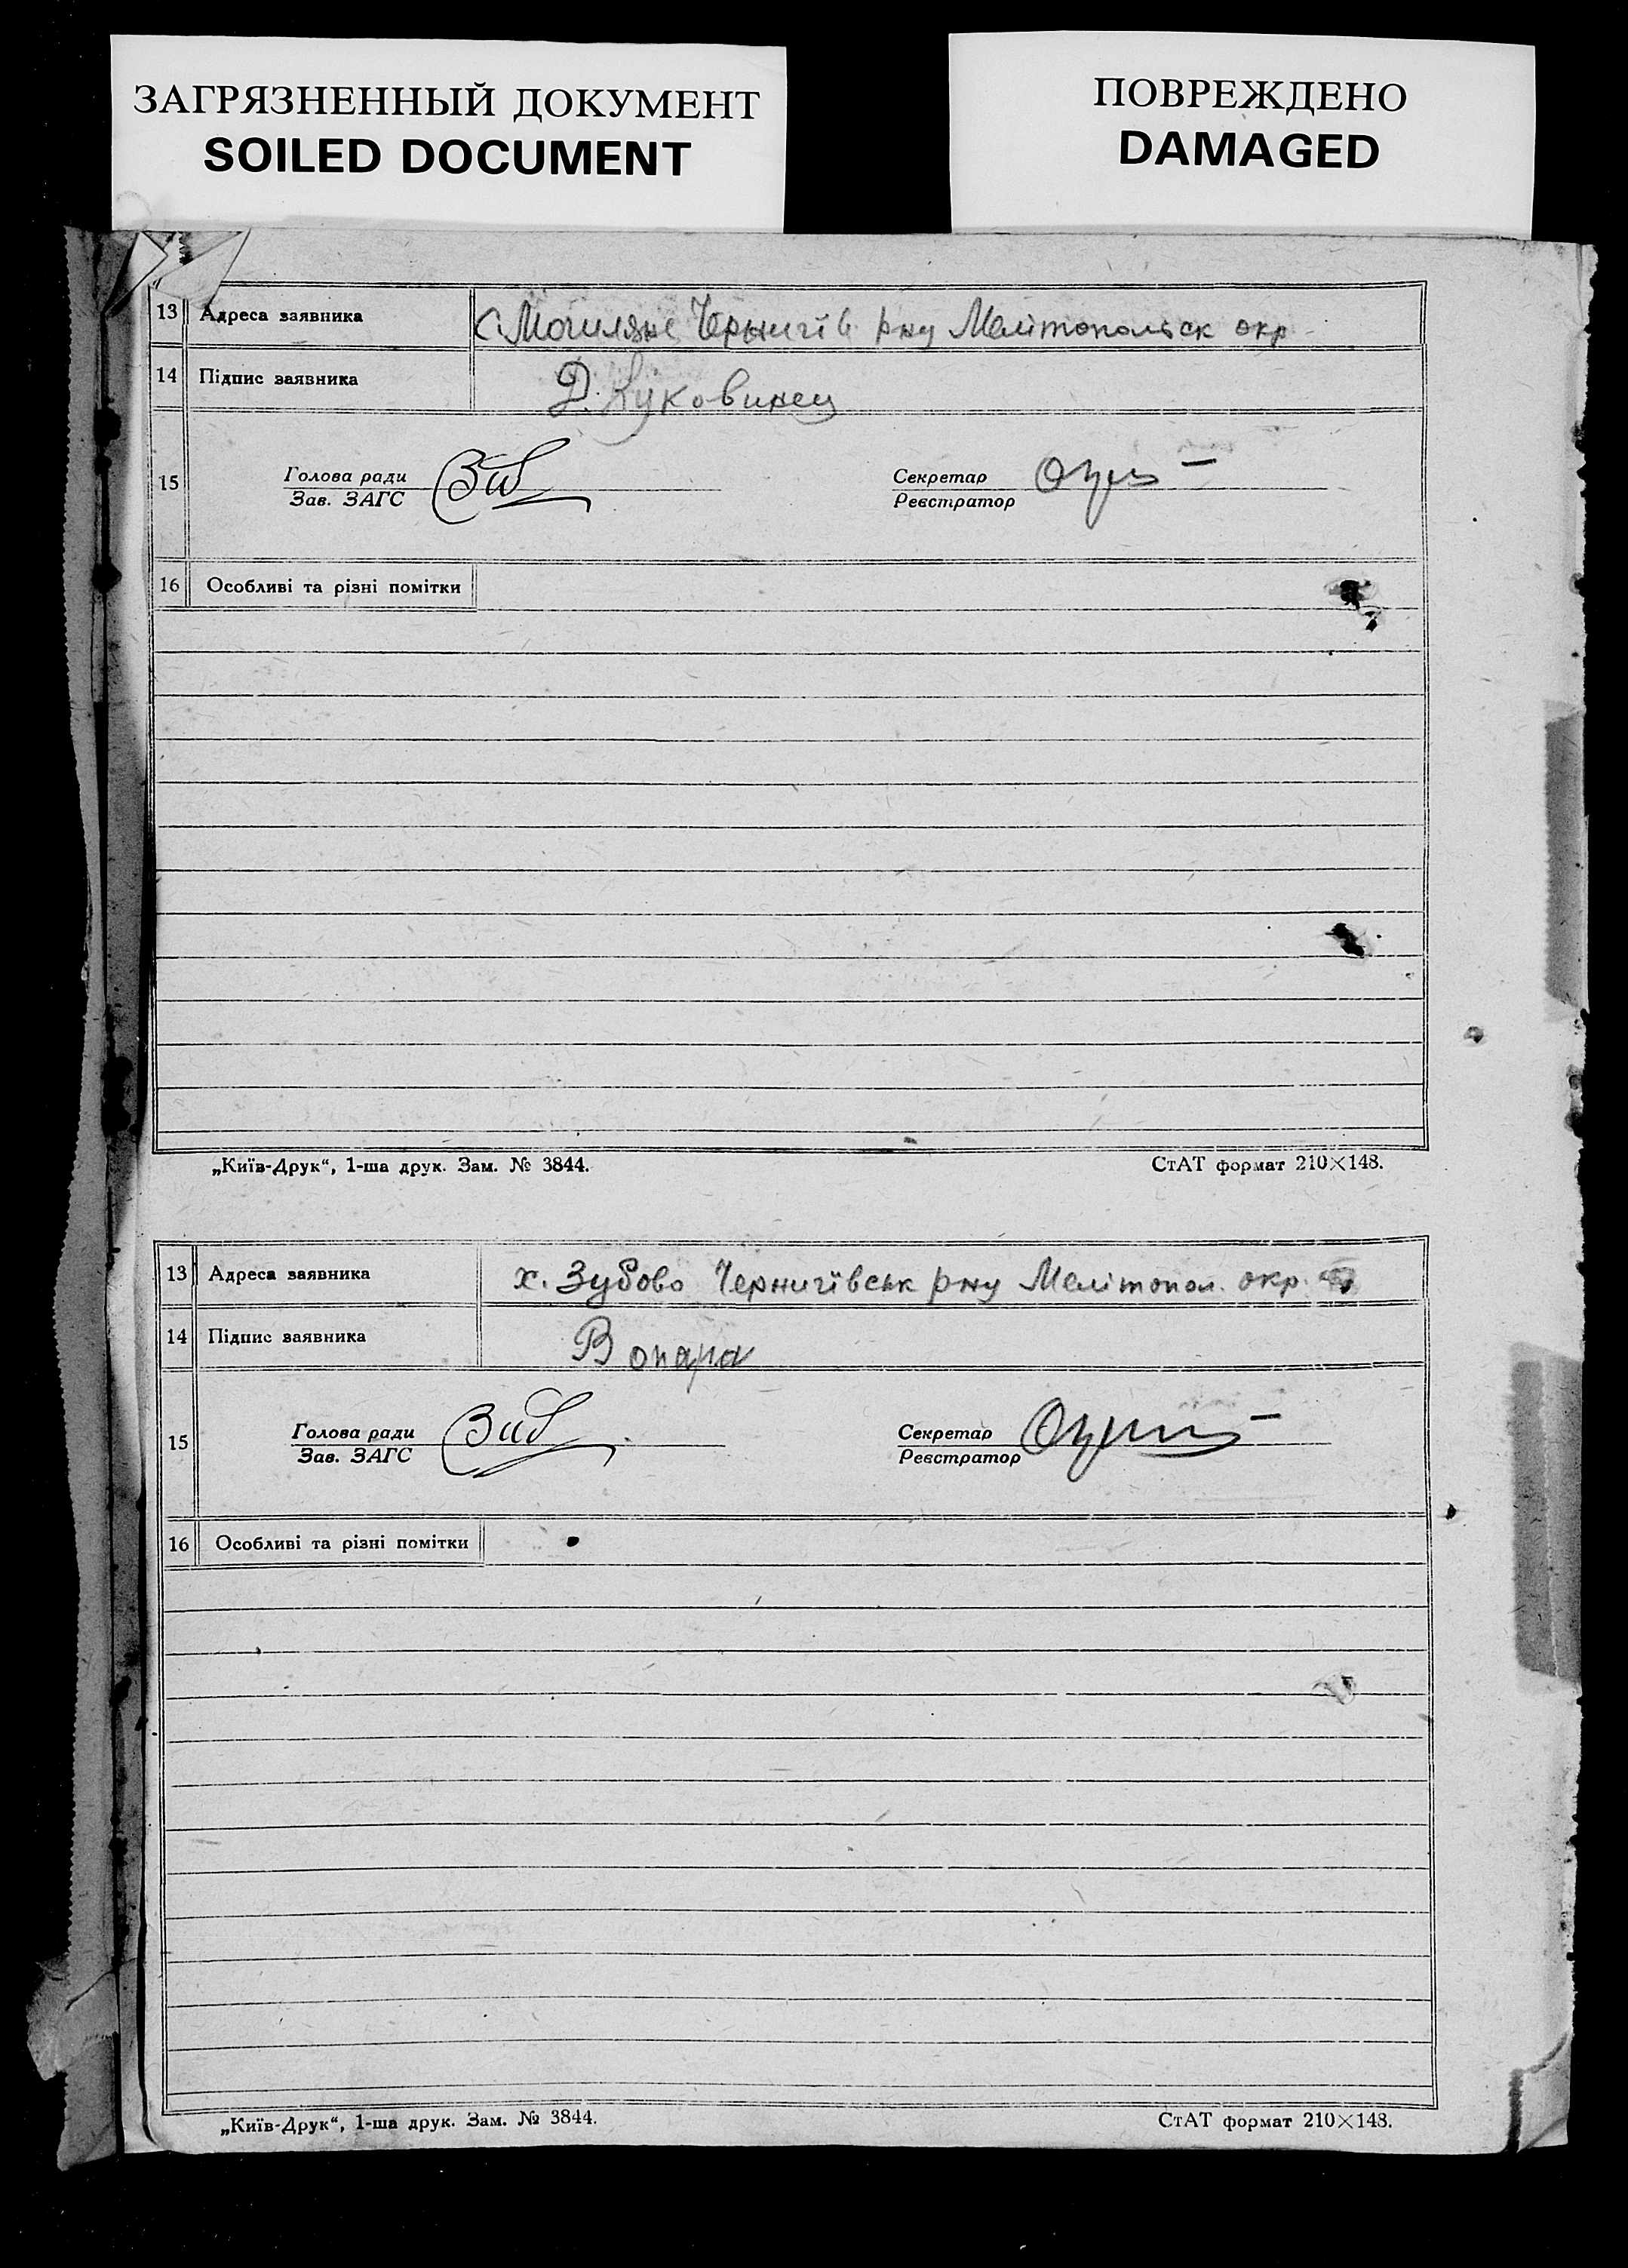 ЗАГРЯЗНЕННЫЙ ДОКУМЕНТ
SOILED DOCUMENT
ПОВРЕЖДЕНО
DAMAGED
13 Адреса заявника с. Могиляне Чернигів рну Мелітопольск окр
14 Підпис заявника Д. Куковинец
15 Голова ради
Зав. ЗАГС
Секретар
Реєстратор
16 Особливі та різні помітки
„Київ-Друк“, 1-ша друк. Зам. № 3844.
СтАТ формат 210×148.
13 Адреса заявника х. Зубово Чернигівськ рну Мелітопол. окр.
14 Підпис заявника В опара
15 Голова ради
Зав. ЗАГС
Секретар
Реєстратор
16 Особливі та різні помітки
„Київ-Друк“, 1-ша друк. Зам. № 3844.
СтАТ формат 210×148.